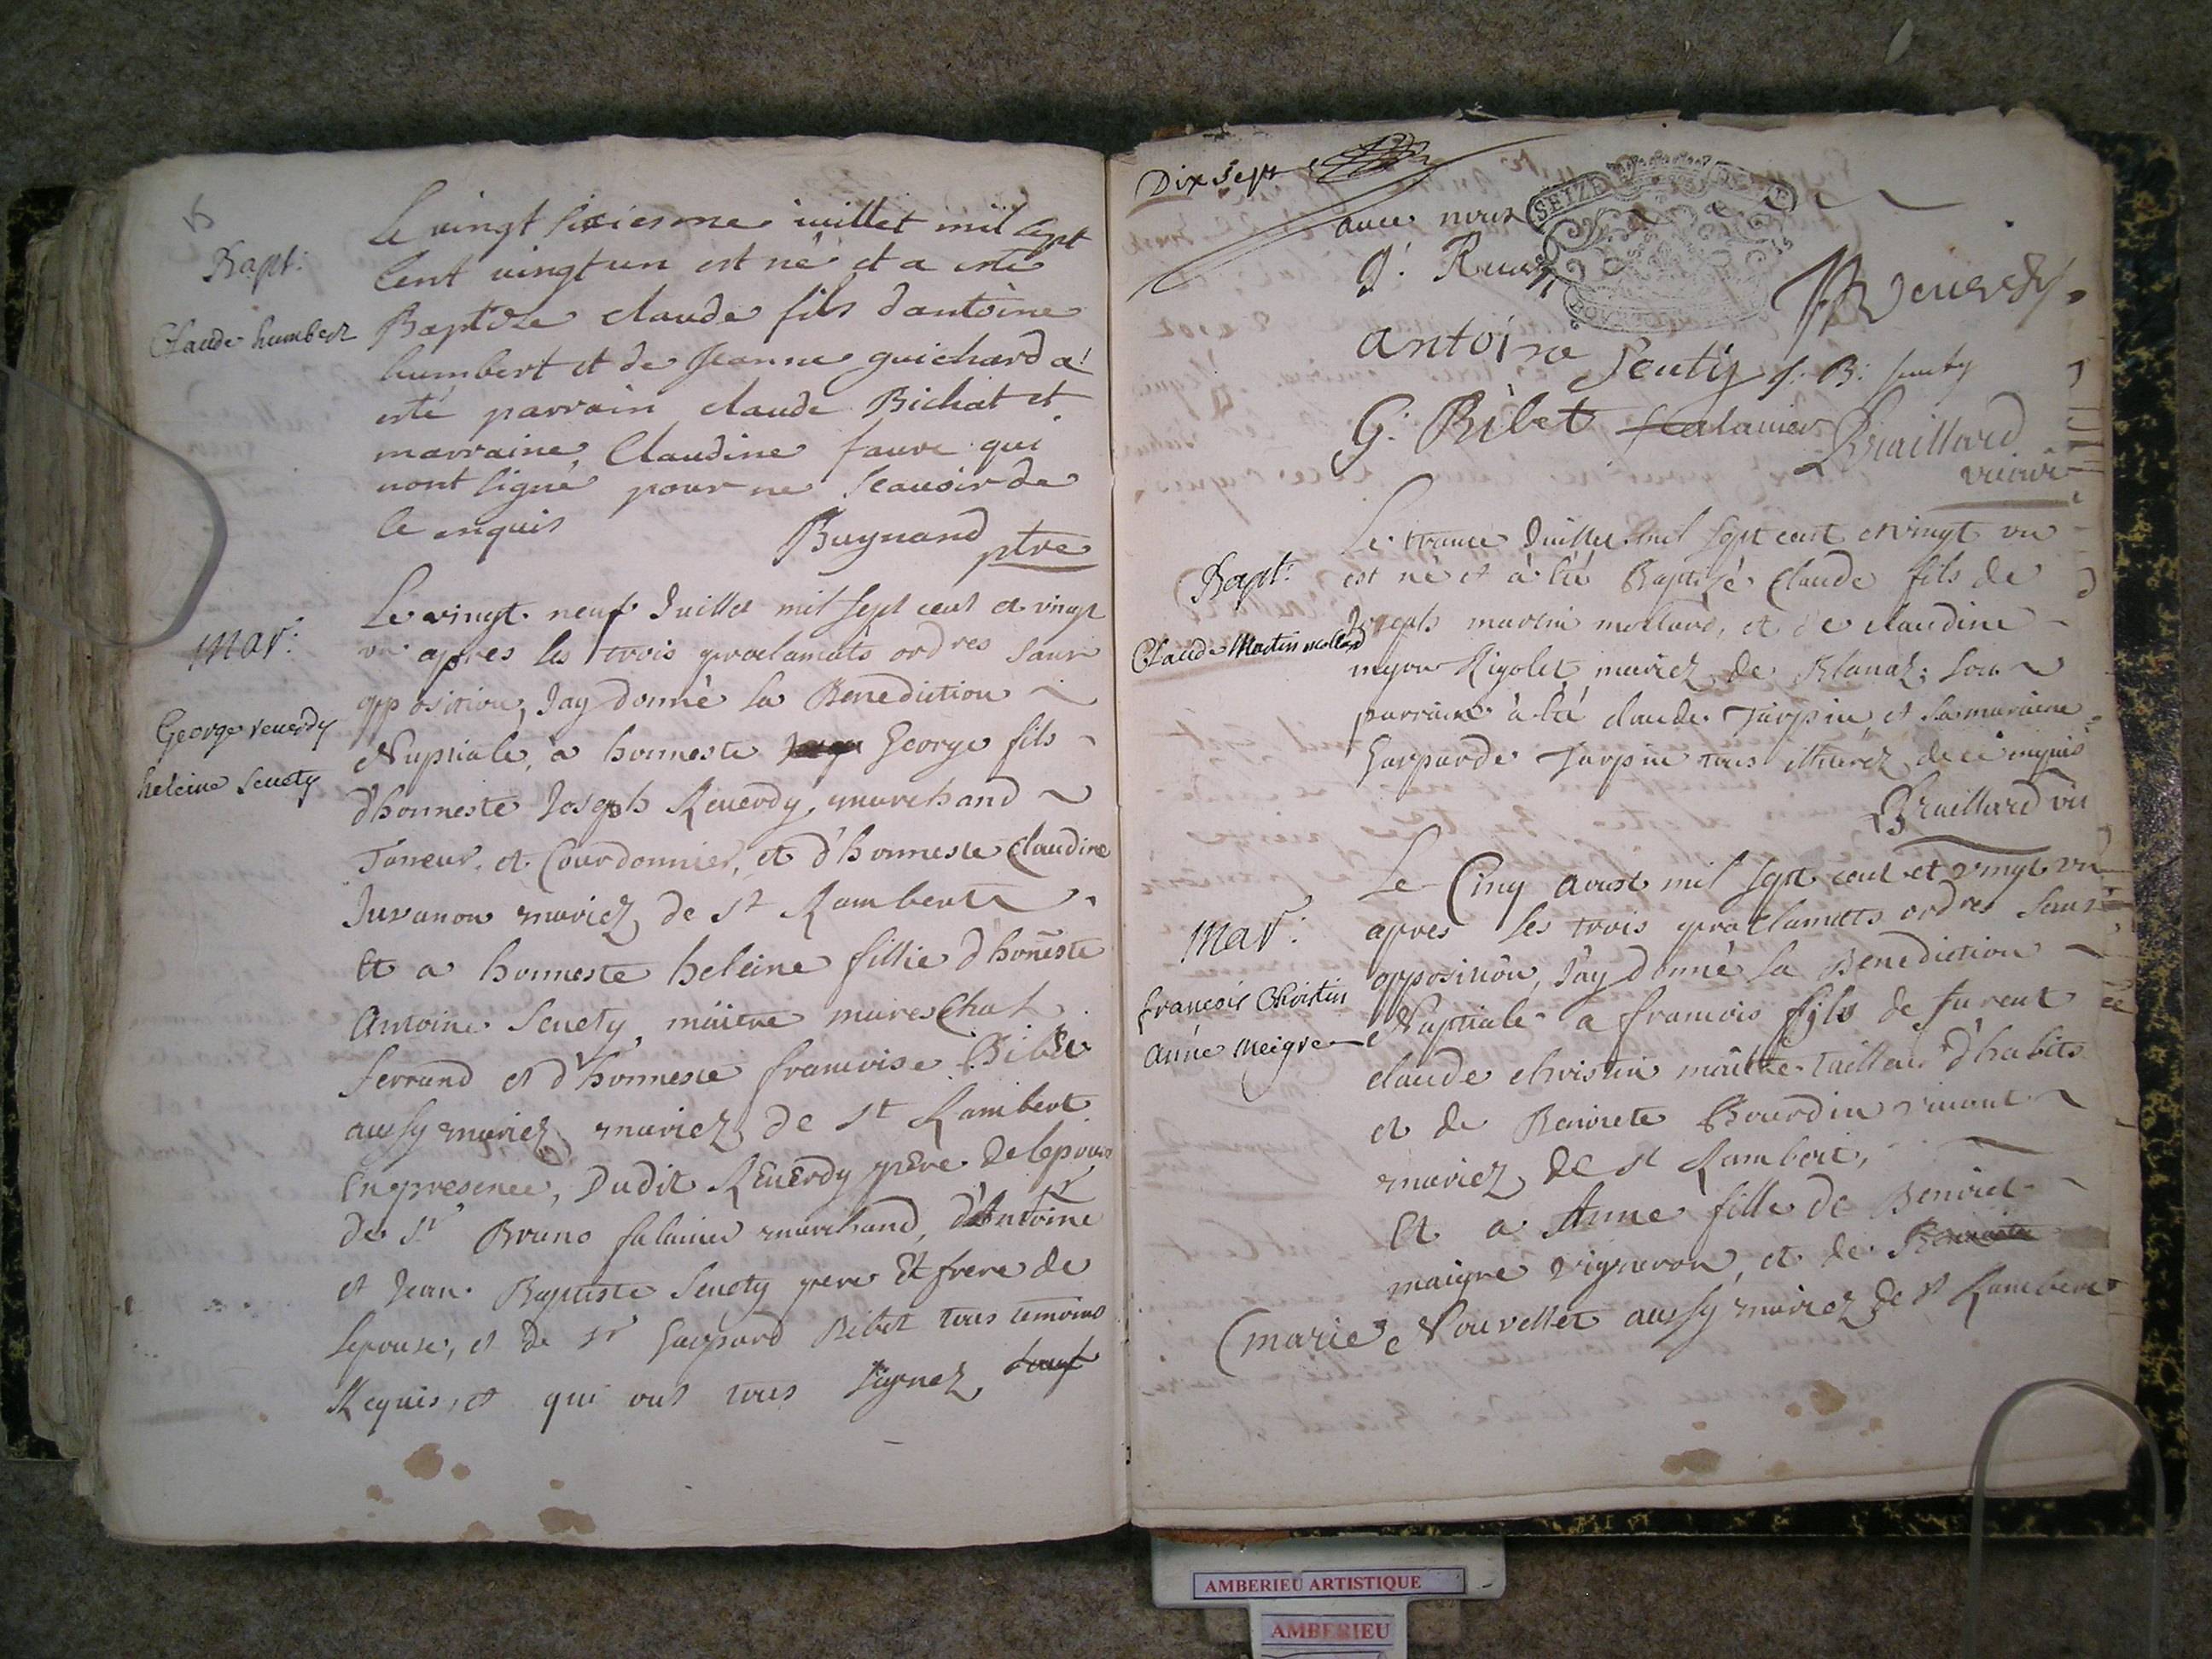 Bapt:
Claude humbert
Le vingt sixiesme iuillet mil sept
Cent vingt un est né et a esté
Baptize claude fils dantoine
humbert et de Jeanne guichard a
esté parrain claude Bichat et
marraine Claudine faure qui
nont signé pour ne scauoir de
ce enquis
Buynand ptre
Mar:
George reuerdy
heleine Seuety
Le vingt neuf Juillet mil sept cent et vingt
vn apres les trois proclamats ordres sans
opposition, Jay donné la Benediction
Nuptiale, a honneste George fils
d'honneste Joseph Reuerdy, marchand
Taneur, et Courdonnier, et d'honneste Claudine
Juvanon mariez de St Rambert
Et a honneste heleine fillie d'honneste
Antoine Seuety, maitre mareschal
ferrand et d'honneste francoise Bibet
aussy mariez mariez de St Rambert
En presence, Dudit Reuerdy pere de lepoux
de Sr Bruno falauier marchand, d'Antoine
et Jean Baptiste Seuety pere Et frere de
lepouse, et de Sr Gaspard Bibet tous temoins
Requis, et qui ont tous signez, sauf
Dix Sept
auec nous
SEIZE
J. Reuerdy
antoine Seuety J: B: Seuety
G: Bibet falauier Braillard
vicaire
Bapt:
Claude Martin mollard
Le trante Juillet mil sept cent et vingt vn
est né et à été Baptizé Claude fils de
Joseph martin mollard, et de claudine
Rigolet mariez de Blanaz; son
parrain à été claude Tarpin et sa maraine
Gasparde Tarpin tous illiterez de ce enquis
Braillard vic
Mar:
françois Christin
anne Meigre
Le Cinq aoust mil sept cent et vingt vn
apres les trois proclamats ordres sans
opposition, Jay donné la Benediction
Nuptiale a francois fils de furent
claude christin maitre tailleur d'habits
et de Benoiete Bourdin viuant
mariez de St Rambert,
Et a Anne fille de Benoiet
maigre vigneron, et de
(marie Nouvellet aussy mariez de St Rambert
AMBERIEU ARTISTIQUE
AMBERIEU